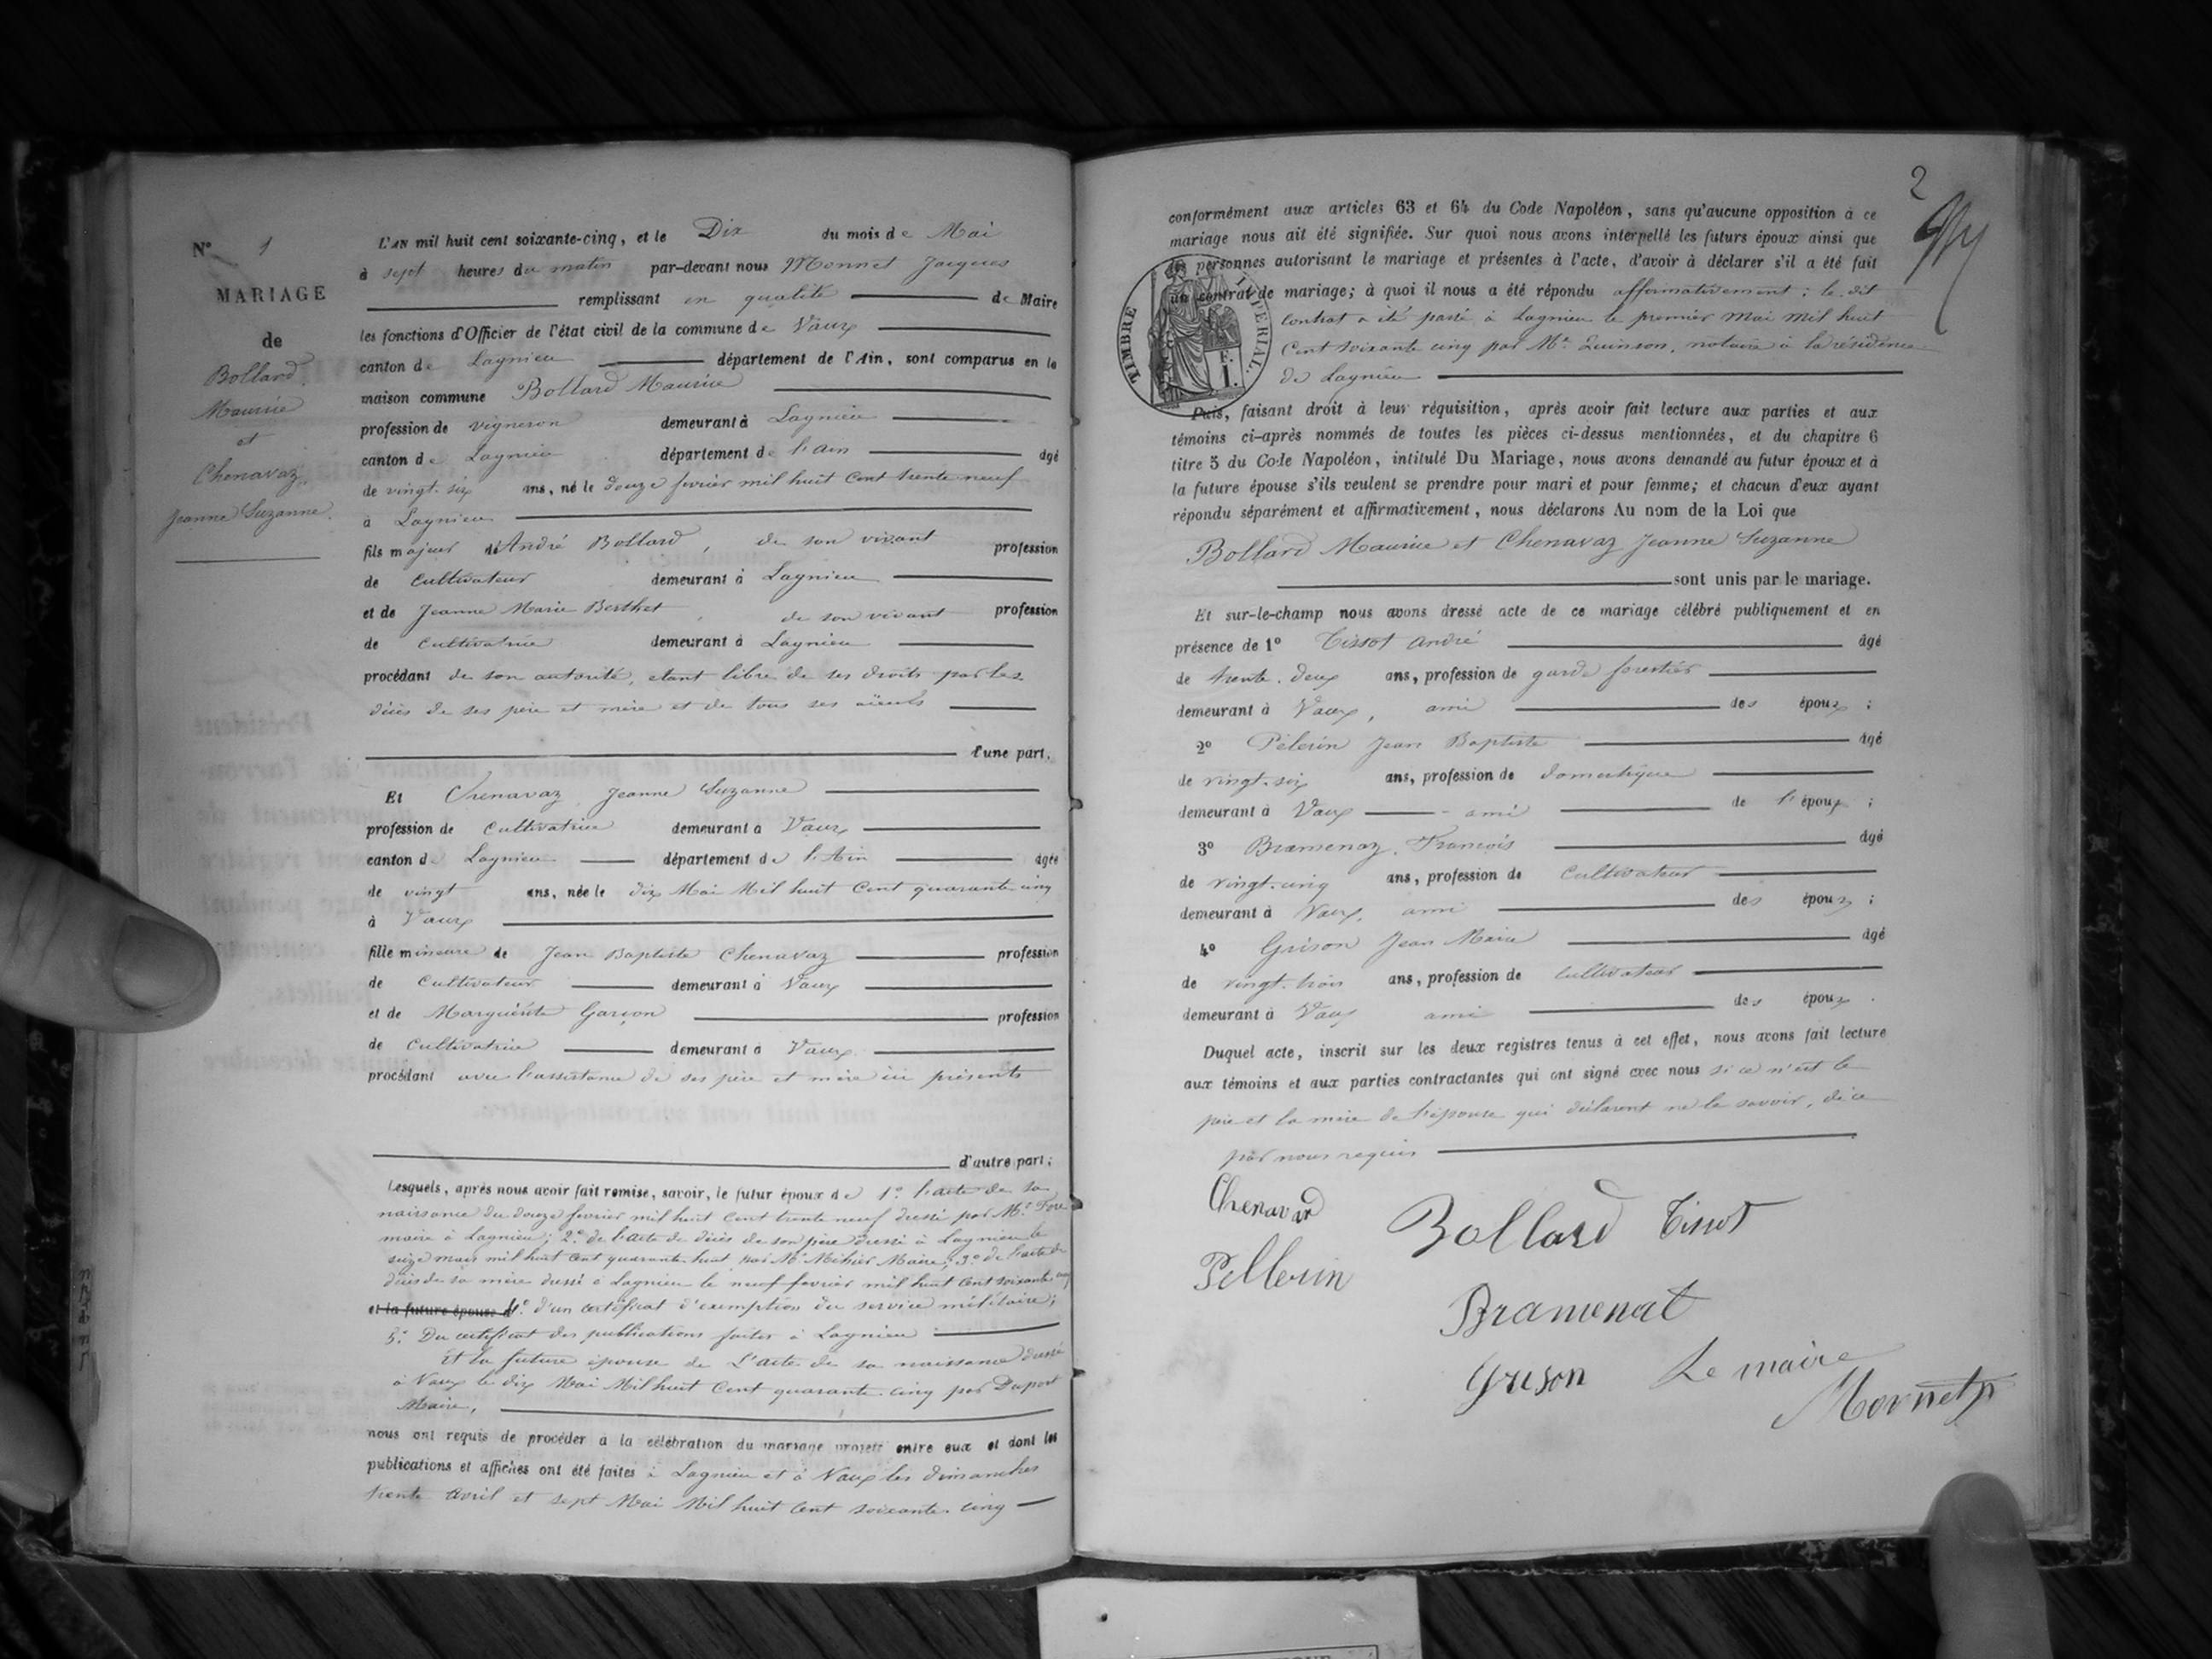 N° 1
MARIAGE
de
Bollard
Maurice
et
Chenavaz
Jeanne Suzanne.
L'AN mil huit cent soixante-cinq, et le Dix du mois de Mai
à sept heures du matin par-devant nous Monnet Jacques
remplissant en qualité de Maire
les fonctions d'Officier de l'état civil de la commune de Vaux
canton de Lagnieu département de l'Ain, sont comparus en la
maison commune Bollard Maurice
profession de vigneron demeurant à Lagnieu
canton de Lagnieu département de l'ain âgé
de vingt-six ans, né le douze fevrier mil huit Cent trente neuf
à Lagnieu
fils majeur de André Bollard, de son vivant profession
de Cultivateur demeurant à Lagnieu
et de Jeanne Marie Berthet, de son vivant profession
de Cultivatrice demeurant à Lagnieu
procédant de son autorité, etant libre de ses droits par les
décès de ses père et mère et de tous ses aïeuls
d'une part.
Et Chenavaz Jeanne Suzanne
profession de Cultivatrice demeurant à Vaux
canton de Lagnieu département de l'Ain âgée
de vingt ans, née le dix Mai Mil huit Cent quarante-cinq
à Vaux
fille mineure de Jean Baptiste Chenavaz profession
de Cultivateur demeurant à Vaux
et de Marguerite Garçon profession
de Cultivatrice demeurant à Vaux
procédant avec l'assistance de ses père et mère ici présents
d'autre part;
Lesquels, après nous avoir fait remise, savoir, le futur époux de 1° l'acte de sa
naissance du douze fevrier mil huit Cent trente neuf dressé par Mr.
maire à Lagnieu; 2° de l'acte de décès de son père dressé à Lagnieu le
seize mars mil huit cent quarante huit par Mr Maire; 3° de l'acte de
décès de sa mère dressé à Lagnieu le neuf fevrier mil huit Cent soixante cinq
et la future épouse 4° d'un certificat d'exemption du service militaire;
5° Du certificat des publications faites à Lagnieu
Et la future épouse de L'acte de sa naissance dressé
à Vaux le dix Mai Mil huit Cent quarante-cinq par Dupont
Maire,
nous ont requis de procéder à la célébration du mariage projeté entre eux et dont les
publications et affiches ont été faites à Lagnieu et à Vaux les dimanches
trente avril et sept Mai Mil huit Cent soixante-cinq
2
conformément aux articles 63 et 64 du Code Napoléon, sans qu'aucune opposition à ce
mariage nous ait été signifiée. Sur quoi nous avons interpellé les futurs époux ainsi que
les personnes autorisant le mariage et présentes à l'acte, d'avoir à déclarer s'il a été fait
un contrat de mariage; à quoi il nous a été répondu affirmativement: le dit
Contrat a été passé à Lagnieu le premier Mai Mil huit
Cent soixante cinq par Me Quinson, notaire à la résidence
de Lagnieu
TIMBRE IMPÉRIAL.
1 F.
Puis, faisant droit à leur réquisition, après avoir fait lecture aux parties et aux
témoins ci-après nommés de toutes les pièces ci-dessus mentionnées, et du chapitre 6
titre 5 du Code Napoléon, intitulé Du Mariage, nous avons demandé au futur époux et à
la future épouse s'ils veulent se prendre pour mari et pour femme; et chacun d'eux ayant
répondu séparément et affirmativement, nous déclarons Au nom de la Loi que
Bollard Maurice et Chenavaz Jeanne Suzanne
sont unis par le mariage.
Et sur-le-champ nous avons dressé acte de ce mariage célébré publiquement et en
présence de 1° Tissot André âgé
de trente-deux ans, profession de garde forestier
demeurant à Vaux, ami des époux;
2° Pèlerin Jean Baptiste âgé
de vingt-six ans, profession de domestique
demeurant à Vaux ami de l'époux;
3° Bramenaz, François âgé
de vingt-cinq ans, profession de Cultivateur
demeurant à Vaux, ami des époux;
4° Grison Jean Marie âgé
de vingt-trois ans, profession de cultivateur
demeurant à Vaux ami des époux.
Duquel acte, inscrit sur les deux registres tenus à cet effet, nous avons fait lecture
aux témoins et aux parties contractantes qui ont signé avec nous si ce n'est le
père et la mère de l'épouse qui déclarent ne le savoir, de ce
par nous requis
Chenavar
Bollard Tissot
Pellerin
Bramenat
Grison Le maire
Monnet